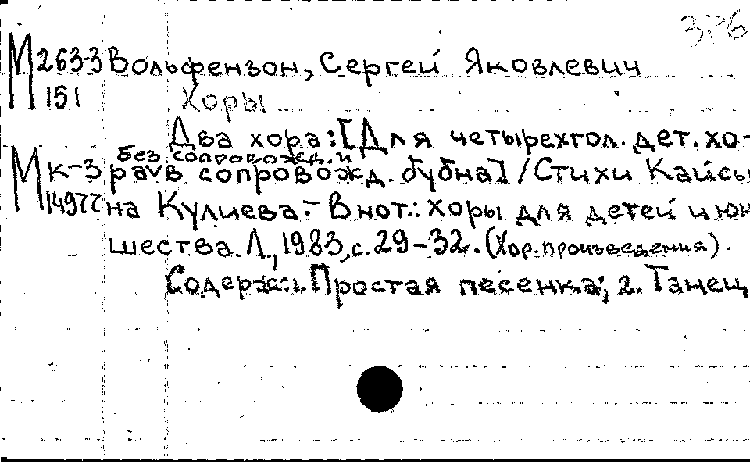 М 263-3 Вольфензон, Сергей Яковлевич
151 Хоры
Два хора: [Для четырехгол. дет. хо-
без сопровожд. и
М к-3 ра v в сопровожд. бубна] / Стихи Кайсы
14977 на Кулиева.- В нот.: хоры для детей и юн
шества. Л., 1983, с. 29-32. (Хор. произведения).
Содерж.: 1. Простая песенка; 2. Танец